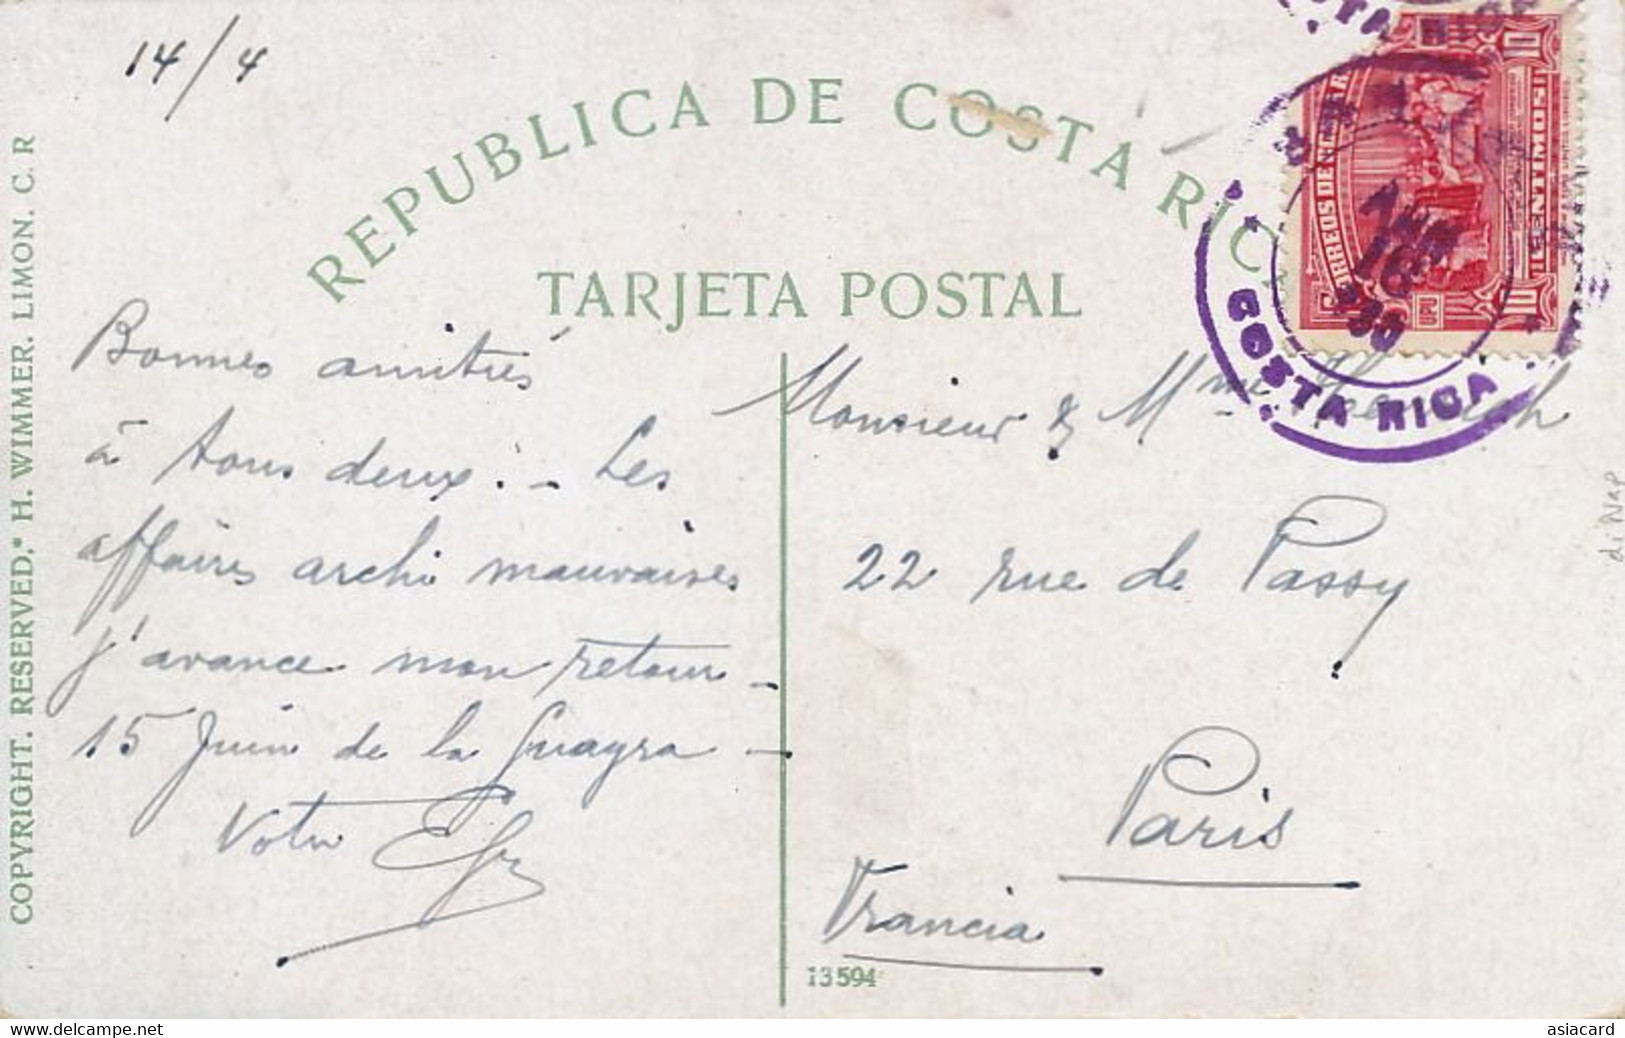 14/4
REPUBLICA DE COSTA RICA
TARJETA POSTAL
COPYRIGHT. RESERVED.* H. WIMMER. LIMON. C. R
CORREOS DE
10 CENTIMOS 10
COSTA RICA
Bonnes amitiés
à tous deux. - Les
affaires archi mauvaises
j'avance mon retour -
15 Juin de la Guayra -
Votre
Monsieur & Mme
22 rue de Passy
Paris
Francia
13594
di Nap
asiacard su Delcampe.net
asiacard